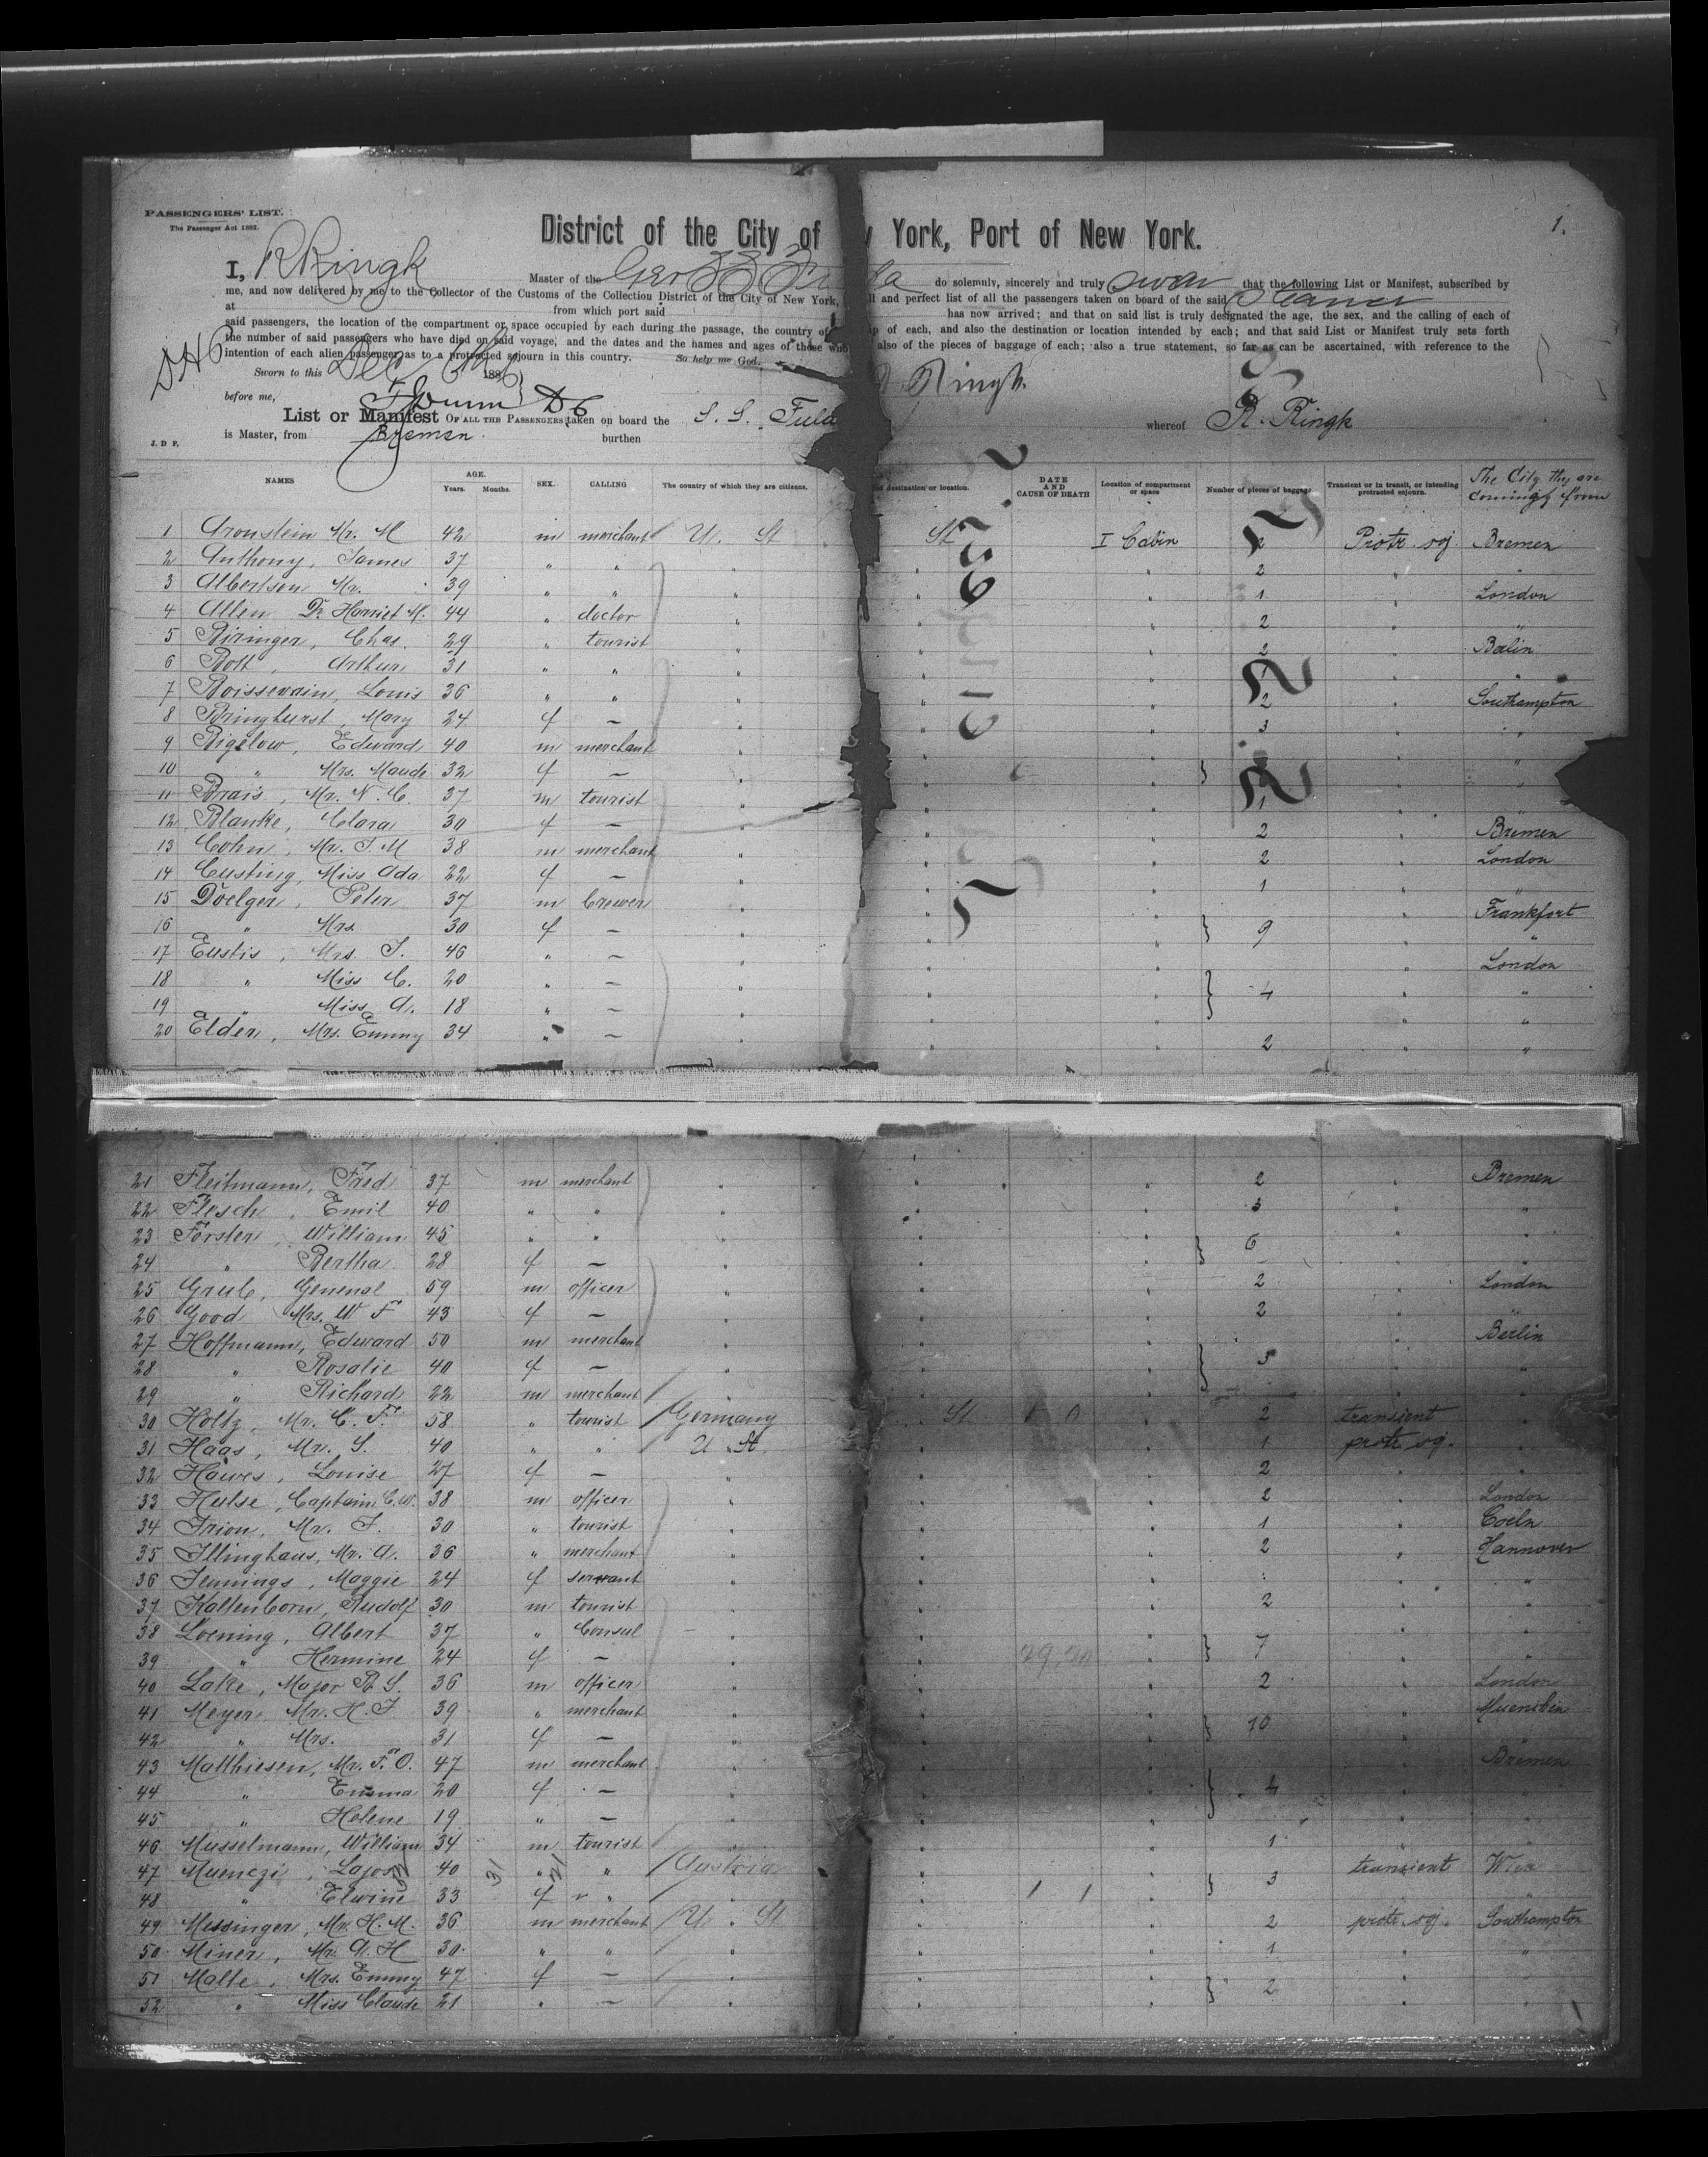 PASSENGERS' LIST.
The Passenger Act 1882.
1.
District of the City of York, Port of New York.
I, R Ringk Master of the Ger SS Fulda do solemnly, sincerely and truly swear that the following List or Manifest, subscribed by
me, and now delivered by me to the Collector of the Customs of the Collection District of the City of New York, and perfect list of all the passengers taken on board of the said Steamer
at from which port said has now arrived; and that on said list is truly designated the age, the sex, and the calling of each of
said passengers, the location of the compartment or space occupied by each during the passage, the country of of each, and also the destination or location intended by each; and that said List or Manifest truly sets forth
the number of said passengers who have died on said voyage, and the dates and the names and ages of those who also of the pieces of baggage of each; also a true statement, so far as can be ascertained, with reference to the
intention of each alien passenger as to a protracted sojourn in this country. So help me God.
Sworn to this Dec 188 R Ringk
before me,
List or Manifest OF ALL THE PASSENGERS taken on board the S. S. Fulda whereof R. Ringk
is Master, from Bremen. burthen
J. D P,
NAMES AGE. Years. Months. SEX. CALLING The country of which they are citizens. destination or location. DATE AND CAUSE OF DEATH Location of compartment or space Number of pieces of baggage Transient or in transit, or intending protracted sojourn. The City they are coming from
1 Aronstein Mr. M 42 m merchant U. St St I Cabin 2 Protr. soj. Bremen
2 Anthony, James 37 " " 2 "
3 Albertson Mr. 39 " " 1 London
4 Allen Dr. Harriet M. 44 " doctor 2 "
5 Biringer, Chas. 29 " tourist 2 Berlin
6 Bott, Arthur 31 " " "
7 Boissevain, Louis 36 " " 2 Southampton
8 Bringhurst, Mary 24 f — 3 "
9 Bigelow, Edward 40 m merchant "
10 " Mrs. Maude 32 f — "
11 Brais, Mr. N. C. 37 m tourist 1
12 Blanke, Clara 30 f — 2 Bremen
13 Cohn, Mr. S. M 38 m merchant 2 London
14 Custing, Miss Ada 22 f — 1 "
15 Doelger, Peter 37 m brewer Frankfort
16 " Mrs. 30 f — } 9 "
17 Eustis, Mrs. J. 46 " — London
18 " Miss C. 20 " — } 4 "
19 " Miss A. 18 " — "
20 Elder, Mrs. Emmy 34 " — 2 "
21 Fleitmann, Fred 37 m merchant 2 Bremen
22 Flesch, Emil 40 " " 3 "
23 Förster, William 45 " " } 6 "
24 " Bertha 28 f —
25 Grub, General 59 m officer 2 London
26 Good Mrs. W F 43 f — 2 "
27 Hoffmann, Edward 50 m merchant Berlin
28 " Rosalie 40 f — } 3 "
29 " Richard 22 m merchant "
30 Holtz, Mr. C. F. 58 " tourist Germany St 2 transient "
31 Haas, Mr. S. 40 " " U. St. 1 protr. soj. "
32 Hawes, Louise 27 f — 2
33 Hulse, Captain C. W. 38 m officer 2 London
34 Irion, Mr. J. 30 " tourist 1 Coeln
35 Illinghaus, Mr. A. 36 " merchant 2 Hannover
36 Jennings, Maggie 24 f servant "
37 Kaltenborn, Rudolf 30 m tourist 2 "
38 Loening, Albert 37 " Consul "
39 " Hermine 24 f — } 7 "
40 Lake, Major R. S. 36 m officer 2 London
41 Meyer, Mr. H. J. 39 " merchant Muenchen
42 " Mrs. 31 f — } 10 "
43 Matthiesen, Mr. F. O. 47 m merchant Bremen
44 " Emma 20 f — } 4 "
45 " Helene 19 " — "
46 Musselmann, William 34 m tourist 1 "
47 Muenczi, Lajos 40 " " Austria transient Wien
48 " Elwine 33 f " } 3 "
49 Messinger, Mr. H. M. 36 m merchant U. St 2 protr. soj. Southampton
50 Miner, Mr. A. H 30 " " 1 "
51 Malle, Mrs. Emmy 47 f — } 2
52 " Miss Claude 21 " —